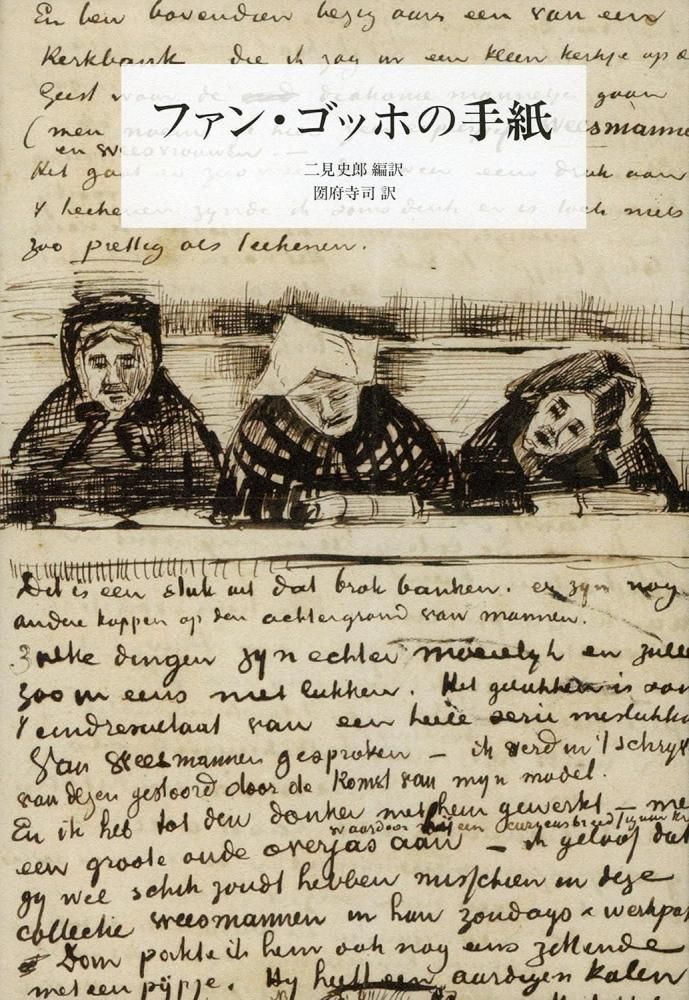 En ben bovendien bezig aan een van een
Kerkbank die ik zag in een kleen kerkje op
Geest waar de diakonie mannetjes gaan
(men
ファン・ゴッホの手紙
二見史郎 編訳
圀府寺司 訳
weesmanne
en weesvrouwen. —
Het
druk aan
't teekenen zynde ik soms denk er is toch niets
zoo prettig als teekenen.
Dit is een stuk uit dat brok banken. er zyn nog
andere koppen op den achtergrond van mannen.
Zulke dingen zyn echter moeielyk en zulle
zoo in eens niet lukken. Het gelukken is
't eindresultaat van een heele serie mislukk
Van Weesmannen gesproken — ik werd in 't schryv
van dezen gestoord door de Komst van myn model.
En ik heb tot den donker met hem gewerkt — 
waardoor een
een groote oude overjas aan — ik geloof dat
gy wel schik zoudt hebben misschien in deze
collectie weesmannen in hun zondags & werkpak
Dom pakte ik hem ook nog eens zittende
met een pypje. Hy heeft een aardigen kalen